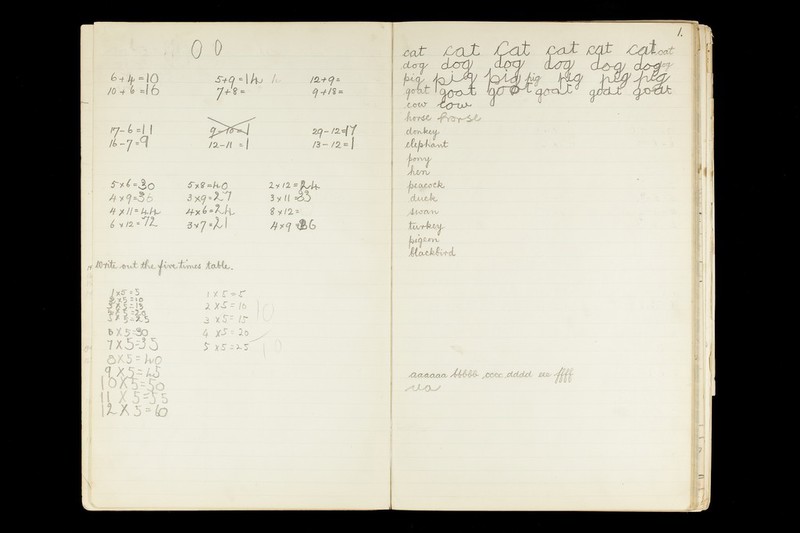 0 0
6+4=10 5+9=14 12+9=
10+6=16 7+8= 9+18=
17-6=11 9-10=1 29-12=17
16-7=9 12-11=1 13-12=1
5x6=30 5x8=40 2x12=24
4x9=36 3x9=27 3x11=33
4x11=44 4x6=24 8x12=
6x12=72 3x7=21 4x9=36
Write out the five times table.
1x5=5 1x5=5
2x5=10 2x5=10 10
3x5=15 3x5=15
4x5=20 4x5=20
5x5=25 5x5=25 10
6x5=30
7x5=35
8x5=40
9x5=45
10x5=50
11x5=55
12x5=60
1.
cat cat cat cat cat cat cat
dog dog dog dog dog dog dog
pig pig pig pig pig pig pig
goat goat goat goat goat goat
cow cow
horse horse
donkey
elephant
pony
hen
peacock
duck
swan
turkey
pigeon
blackbird
aaaaaa bbbbb cccc dddd eee ffff